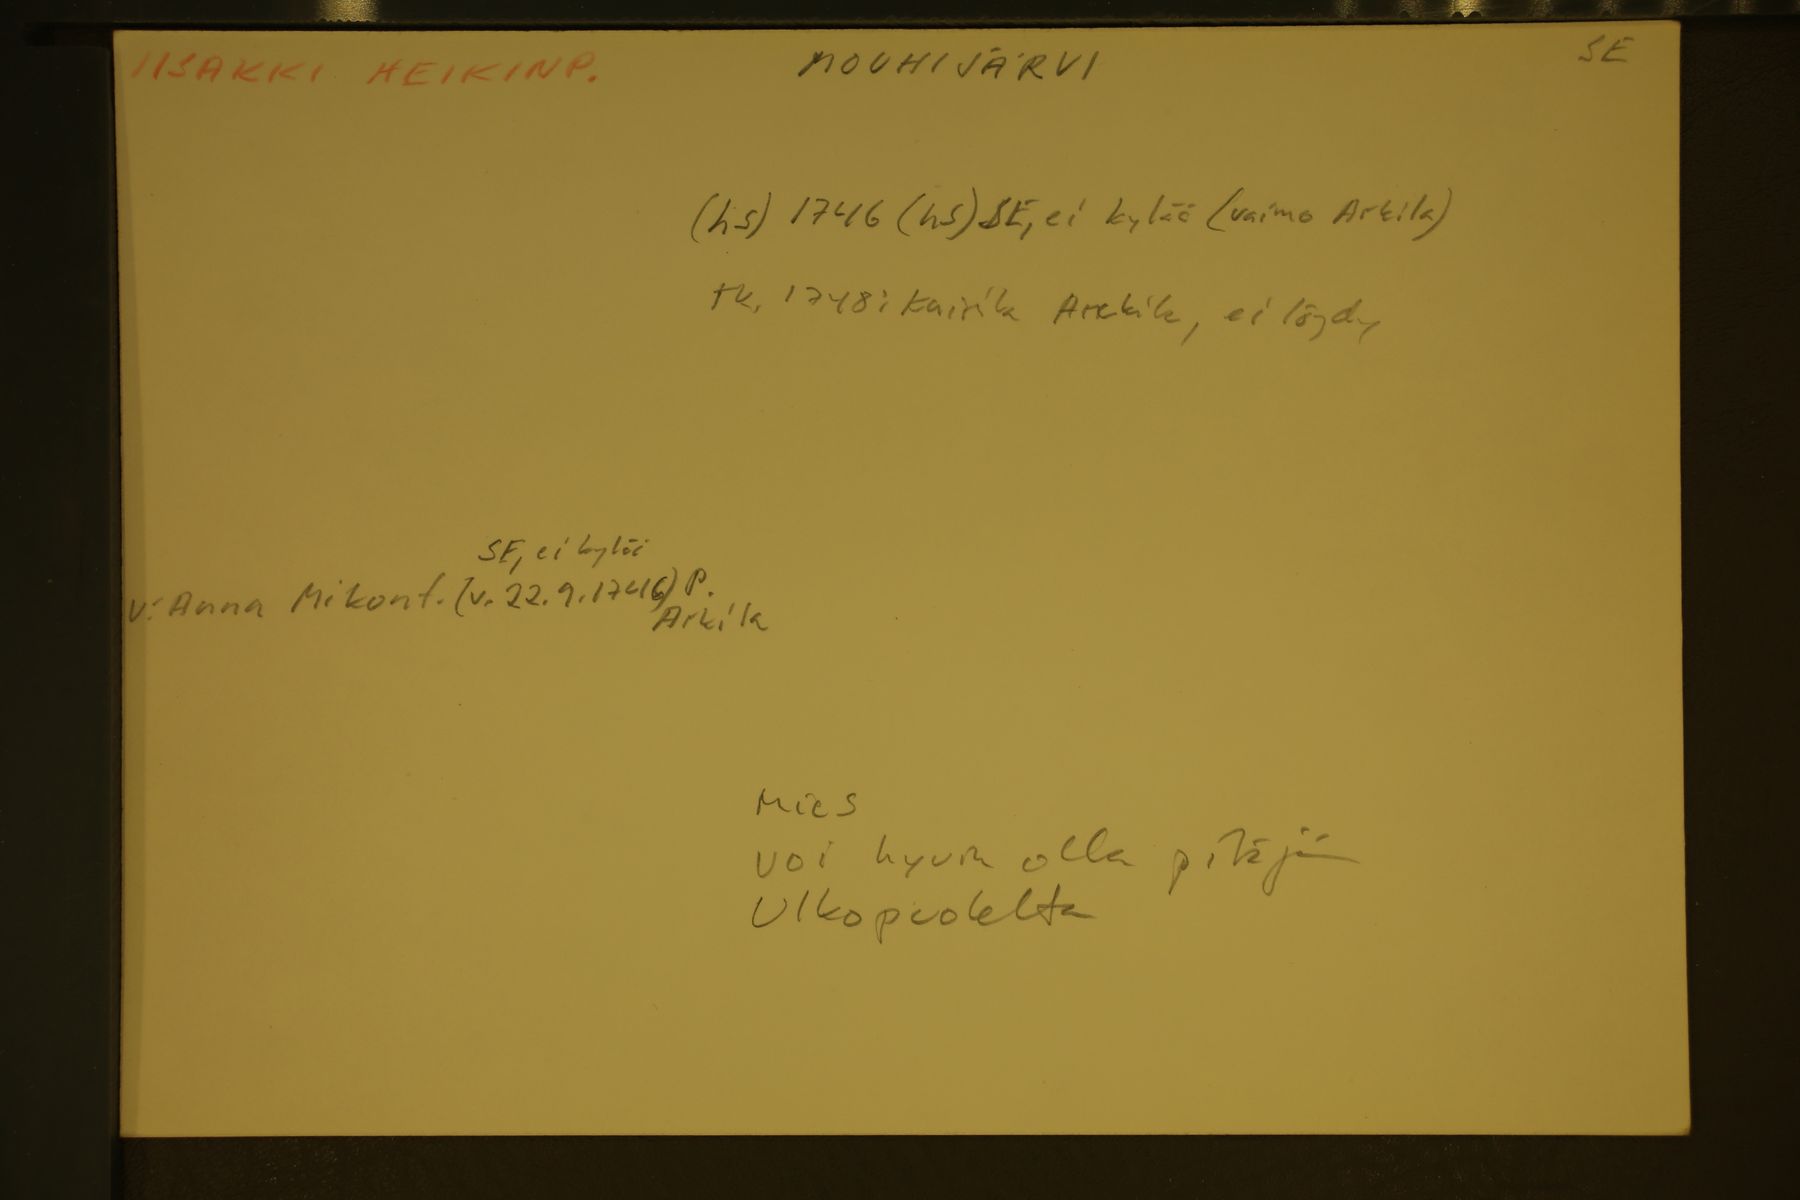 IISAKKI HEIKINP. MOUHIJÄRVI SE
(hs) 1746 (hs) SE, ei kylää (vaimo Arkila)
tk. 1748: Kaikila Arkkila, ei löydy
SE, ei kylää
v: Anna Mikont. (v. 22.9.1746) P.
Arkila
Mies
voi hyvin olla pitäjän
ulkopuolelta